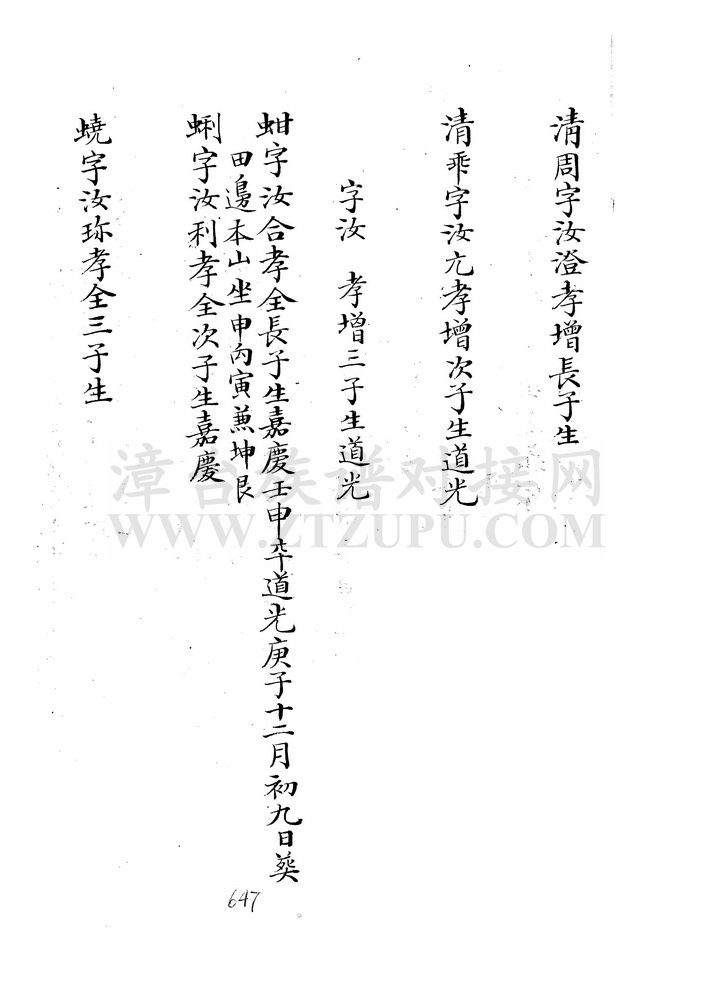 清周字汝澄孝增長子生
清乖字汝亢孝增次子生道光
字汝 孝增三子生道光
蚶字汝合孝全長子生嘉慶壬申卒道光庚子十二月初九日葵
田邊本山坐申向寅兼坤艮
蜊字汝利孝全次子生嘉慶
蟯字汝珎孝全三子生
漳台族谱对接网
WWW.ZTZUPU.COM
647